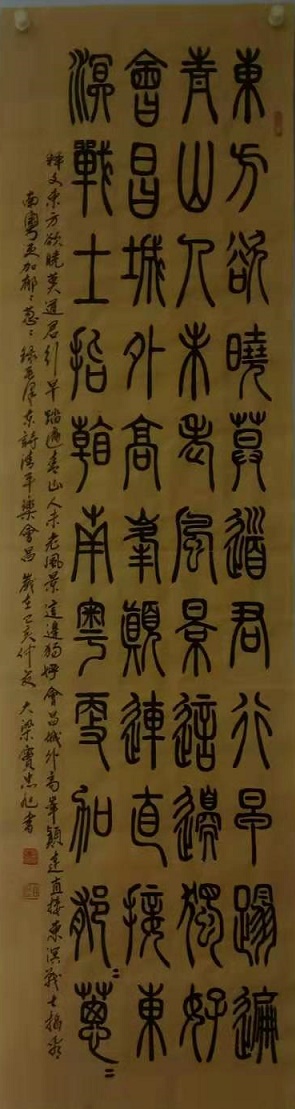 東方欲曉莫道君行早蹋遍
青山人未老風景這邊獨好
會昌城外高峯顛連直接東
溟戰士指看南粵更加郁〻蔥〻
釋文東方欲曉莫道君行早踏遍青山人未老風景這邊獨好會昌城外高峯顛連直接東溟戰士指看
南粵更加郁〻蔥〻 錄毛澤東詩清平樂會昌 歲在己亥仲夏 大梁竇忠 書